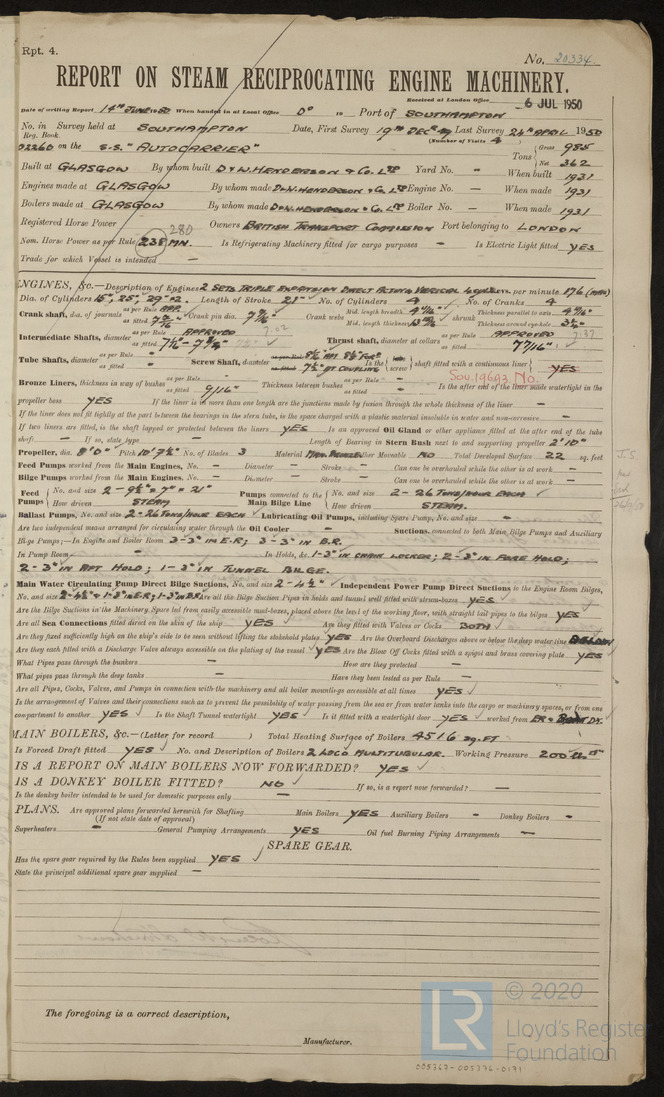 Rpt. 4.
No. 20334
REPORT ON STEAM RECIPROCATING ENGINE MACHINERY.
Received at London Office 6 JUL 1950
Date of writing Report 14TH JUNE 1950 When handed in at Local Office Do 19 Port of SOUTHAMPTON
No. in Survey held at SOUTHAMPTON Date, First Survey 19TH DEC 49 Last Survey 24TH APRIL 1950
Reg. Book (Number of Visits 4
02260 on the S.S. "AUTOCARRIER" Tons Gross 985 Net 362
Built at GLASGOW By whom built D & W. HENDERSON & CO. LTD Yard No. - When built 1931
Engines made at GLASGOW By whom made D & W. HENDERSON & CO. LTD Engine No. - When made 1931
Boilers made at GLASGOW By whom made D & W. HENDERSON & CO. LTD Boiler No. - When made 1931
Registered Horse Power Owners BRITISH TRANSPORT COMMISSION Port belonging to LONDON
280
Nom. Horse Power as per Rule 238 MN. Is Refrigerating Machinery fitted for cargo purposes - Is Electric Light fitted YES
Trade for which Vessel is intended -
ENGINES, &c.—Description of Engines 2 SETS TRIPLE EXPANSION DIRECT ACTING VERTICAL Revs. per minute 176
Dia. of Cylinders 15", 25", 29" 2. Length of Stroke 21" No. of Cylinders 4 No. of Cranks 4
Crank shaft, dia. of journals as per Rule APP. as fitted Crank pin dia. Crank webs Mid. length breadth Mid. length thickness shrunk Thickness parallel to axis Thickness around eye-hole
Intermediate Shafts, diameter as per Rule APPROVED as fitted Thrust shaft, diameter at collars as per Rule APPROVED as fitted 7 7/16"
Tube Shafts, diameter as per Rule - as fitted - Screw Shaft, diameter as per Rule as fitted Is the shaft fitted with a continuous liner YES
Sou. 19693 No.
Bronze Liners, thickness in way of bushes as per Rule - as fitted 9/16" Thickness between bushes as per Rule - as fitted - Is the after end of the liner made watertight in the
propeller boss YES If the liner is in more than one length are the junctions made by fusion through the whole thickness of the liner -
If the liner does not fit tightly at the part between the bearings in the stern tube, is the space charged with a plastic material insoluble in water and non-corrosive -
If two liners are fitted, is the shaft lapped or protected between the liners YES Is an approved Oil Gland or other appliance fitted at the after end of the tube
shaft - If so, state type - Length of Bearing in Stern Bush next to and supporting propeller 2' 10"
Propeller, dia. 8' 0" Pitch No. of Blades 3 Material whether Moveable NO Total Developed Surface 22 sq. feet
Feed Pumps worked from the Main Engines, No. - Diameter - Stroke - Can one be overhauled while the other is at work -
Bilge Pumps worked from the Main Engines, No. - Diameter - Stroke - Can one be overhauled while the other is at work -
Feed Pumps No. and size 2 - 9½" × 7" × 21" How driven STEAM Pumps connected to the Main Bilge Line No. and size 2 - 26 TONS/HOUR EACH How driven STEAM.
Ballast Pumps, No. and size 2 - 26 TONS/HOUR EACH Lubricating Oil Pumps, including Spare Pump, No. and size -
Are two independent means arranged for circulating water through the Oil Cooler - Suctions, connected to both Main Bilge Pumps and Auxiliary
Bilge Pumps;—In Engine and Boiler Room 3-3" IN E.R; 3-3" IN B.R.
In Pump Room - In Holds, &c. 1-3" IN CHAIN LOCKER; 2-3" IN FORE HOLD;
2-3" IN AFT HOLD; 1-3" IN TUNNEL BILGE.
Main Water Circulating Pump Direct Bilge Suctions, No. and size 2-4½" Independent Power Pump Direct Suctions to the Engine Room Bilges,
No. and size Are all the Bilge Suction Pipes in holds and tunnel well fitted with strum-boxes YES
Are the Bilge Suctions in the Machinery Space led from easily accessible mud-boxes, placed above the level of the working floor, with straight tail pipes to the bilges YES
Are all Sea Connections fitted direct on the skin of the ship YES Are they fitted with Valves or Cocks BOTH
Are they fixed sufficiently high on the ship's side to be seen without lifting the stokehold plates YES Are the Overboard Discharges above or below the deep water line BELOW
Are they each fitted with a Discharge Valve always accessible on the plating of the vessel YES Are the Blow Off Cocks fitted with a spigot and brass covering plate YES
What Pipes pass through the bunkers - How are they protected -
What pipes pass through the deep tanks - Have they been tested as per Rule -
Are all Pipes, Cocks, Valves, and Pumps in connection with the machinery and all boiler mountings accessible at all times YES
In the arrangement of Valves and their connections such as to prevent the possibility of water passing from the sea or from water tanks into the cargo or machinery spaces, or from one
compartment to another YES Is the Shaft Tunnel watertight YES Is it fitted with a watertight door YES worked from
MAIN BOILERS, &c.—(Letter for record ) Total Heating Surface of Boilers 4516 SQ. FT
Is Forced Draft fitted YES No. and Description of Boilers 2 LOCO MULTITUBULAR. Working Pressure 200
IS A REPORT ON MAIN BOILERS NOW FORWARDED? YES
IS A DONKEY BOILER FITTED? NO If so, is a report now forwarded? -
Is the donkey boiler intended to be used for domestic purposes only -
PLANS. Are approved plans forwarded herewith for Shafting - Main Boilers YES Auxiliary Boilers - Donkey Boilers -
(If not state date of approval)
Superheaters - General Pumping Arrangements YES Oil fuel Burning Piping Arrangements -
SPARE GEAR.
Has the spare gear required by the Rules been supplied YES
State the principal additional spare gear supplied -
The foregoing is a correct description,
Manufacturer.
© 2020
LR
Lloyd's Register
Foundation
005367-005376-0171